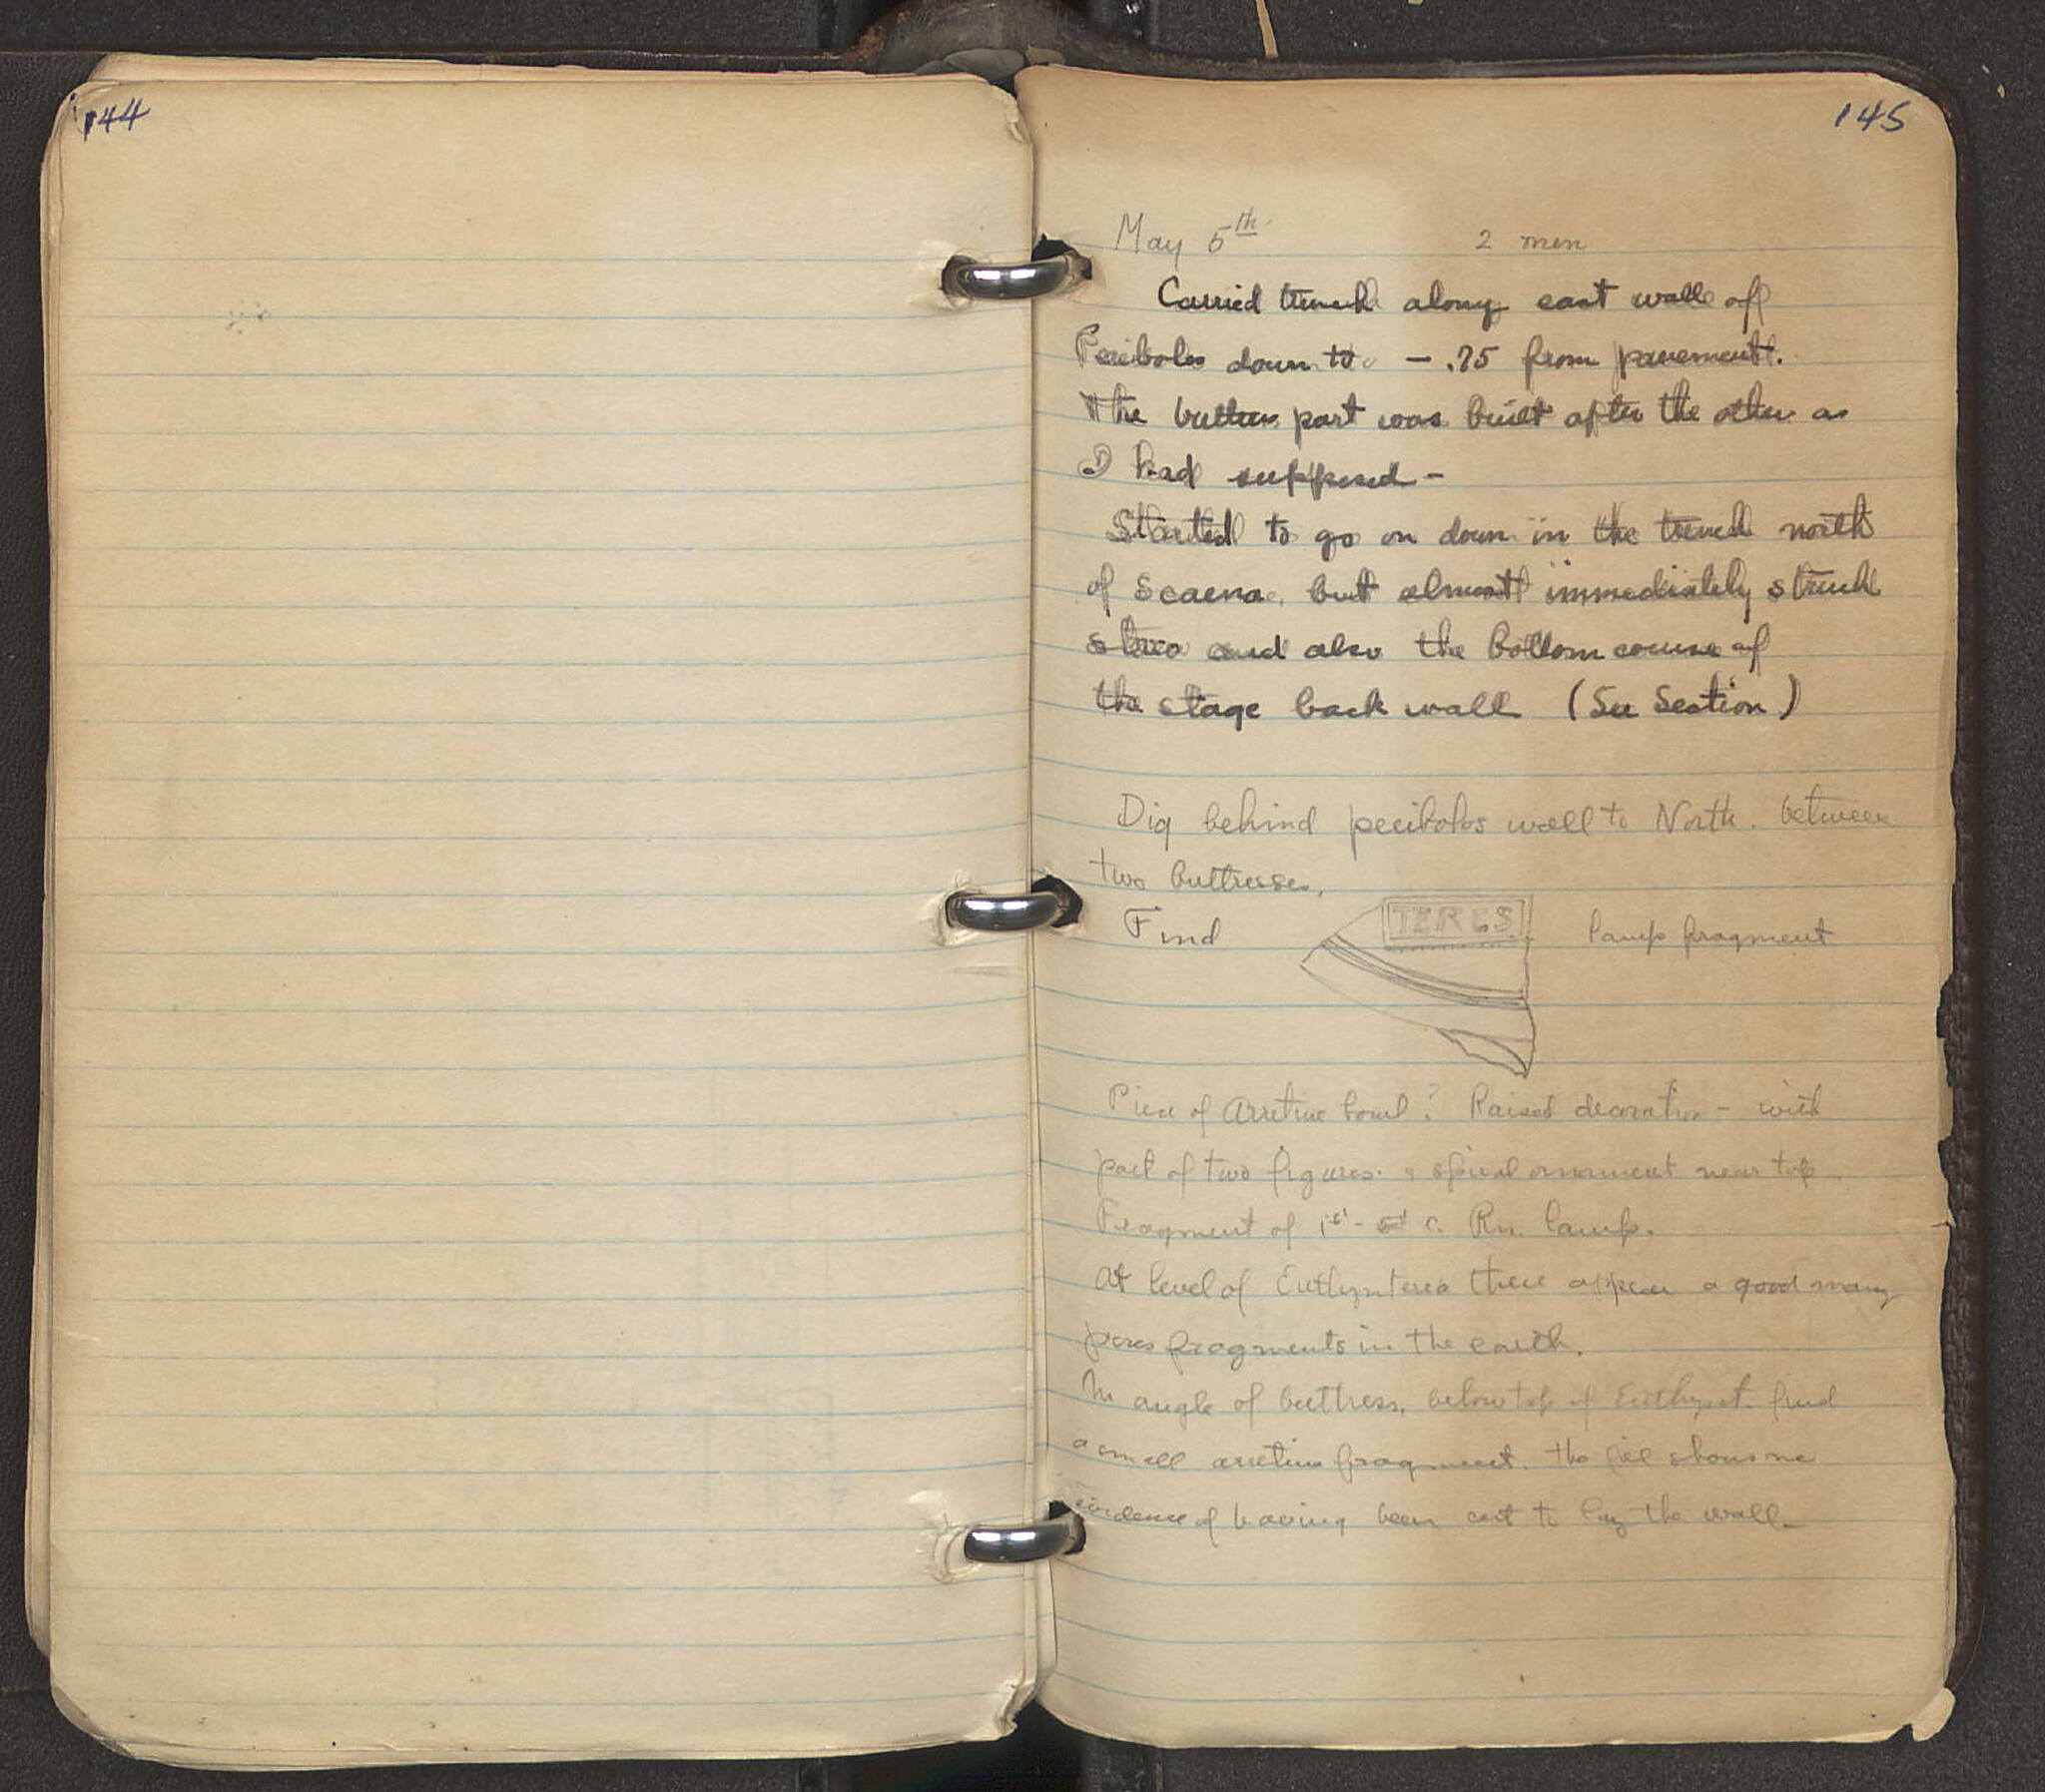 144
145
May 5th 2 men
Carried trench along east wall of
Peribolos down to - .75 from pavement.
The buttress part was built after the other as
I had supposed -
Started to go on down in the trench north
of Scaena, but almost immediately struck
and also the bottom course of
the stage back wall (See Section)
Dig behind peribolos wall to North. between
two buttresses.
Find TERES lamp fragment
Piece of Arretine bowl? Raised decoration - with
part of two figures. & spiral ornament near top
Fragment of 1st - c. Rn. lamp.
At level of Euthynteria there appear a good many
poros fragments in the earth.
In angle of buttress, below top of Euthynt. find
a small arretine fragment. The fill shows no
evidence of having been cut to lay the wall -